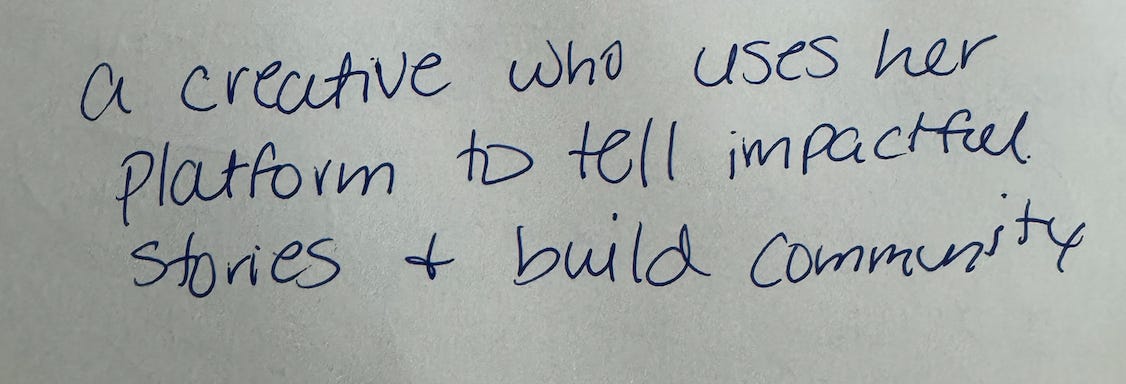 a creative who uses her
platform to tell impactful
stories + build community